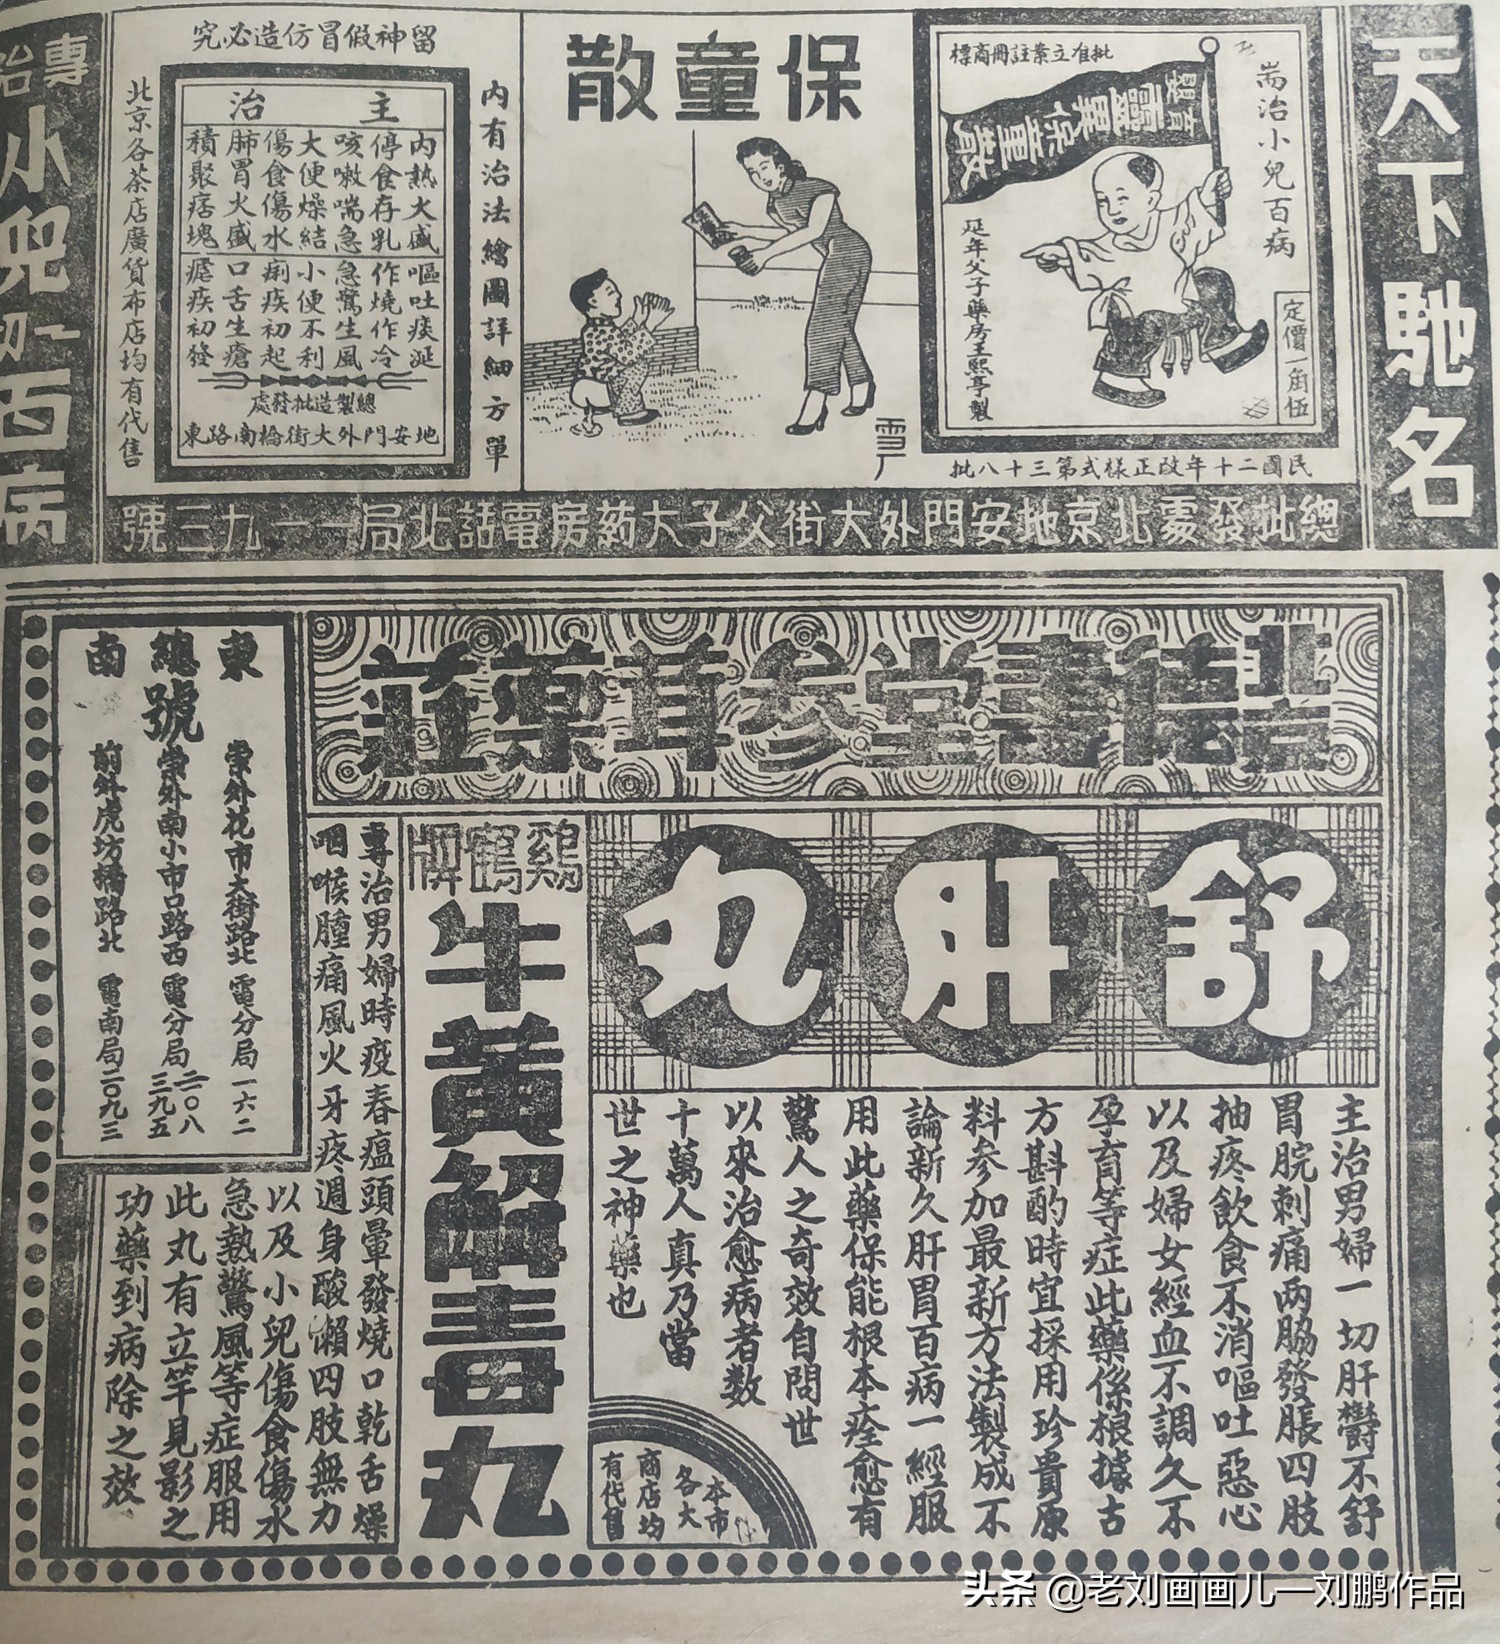 天下馳名
耑治小兒百病
批准立案註冊商標
靈異保童散
定價一角伍
延年父子藥房王熙亭製
民國二十年改正樣式第三十八批
保童散
雪厂
內有治法繪圖詳細方單
留神假冒仿造必究
主治
內熱火盛　嘔吐痰涎
停食存乳　作燒作冷
咳嗽喘急　急驚生風
大便燥結　小便不利
傷食傷水　痢疾初起
肺胃火盛　口舌生瘡
積聚痞塊　瘧疾初發
總製造批發處
地安門外大街橋南路東
北京各茶店廣貨布店均有代售
專治小兒一切百病
總批發處北京地安門外大街父子大药房電話北局一一九三號
北京德壽堂參茸藥莊
舒肝丸
主治男婦一切肝鬱不舒
胃脘刺痛兩脇發脹四肢
抽疼飲食不消嘔吐惡心
以及婦女經血不調久不
孕育等症此藥係根據古
方斟酌時宜採用珍貴原
料參加最新方法製成不
論新久肝胃百病一經服
用此藥保能根本痊愈有
驚人之奇效自問世
以來治愈病者數
十萬人真乃當
世之神藥也
本市
各大
商店均
有代售
鷄鶴牌
牛黃解毒丸
專治男婦時疫春瘟頭暈發燒口乾舌燥
咽喉腫痛風火牙疼週身酸懶四肢無力
以及小兒傷食傷水
急熱驚風等症服用
此丸有立竿見影之
功藥到病除之效
東　崇外花市大街路北　電分局一六二
總號　崇外南小市口路西　電分局二〇八　三九五
南　前外虎坊橋路北　電南局二〇九三
头条 @老刘画画儿一刘鹏作品